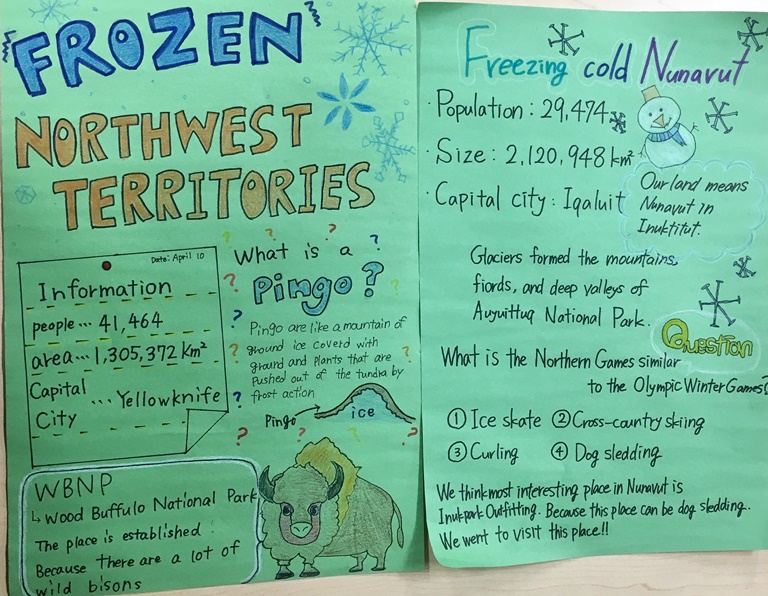 FROZEN
NORTHWEST
TERRITORIES
Date: April 10
Information
people ... 41,464
area ... 1,305,372 km²
Capital
City ... Yellowknife
What is a
Pingo?
Pingo are like a mountain of
ground ice coverd with
graund and plants that are
pushed out of the tundra by
frost action
Pingo
ice
WBNP
↳ Wood Buffulo National Park
The place is established
Because there are a lot of
wild bisons
Freezing cold Nunavut
· Population : 29,474
· Size : 2,120,948 km²
· Capital city : Iqaluit
Our land means
Nunavut in
Inuktitut.
Glaciers formed the mountains,
fiords, and deep valleys of
Auyuittuq National Park.
Question
What is the Northern Games similar
to the Olympic Winter Games?
① Ice skate ② Cross-country skiing
③ Curling ④ Dog sledding
We think most interesting place in Nunavut is
Inukpark Outfitting. Because this place can be dog sledding.
We went to visit this place!!